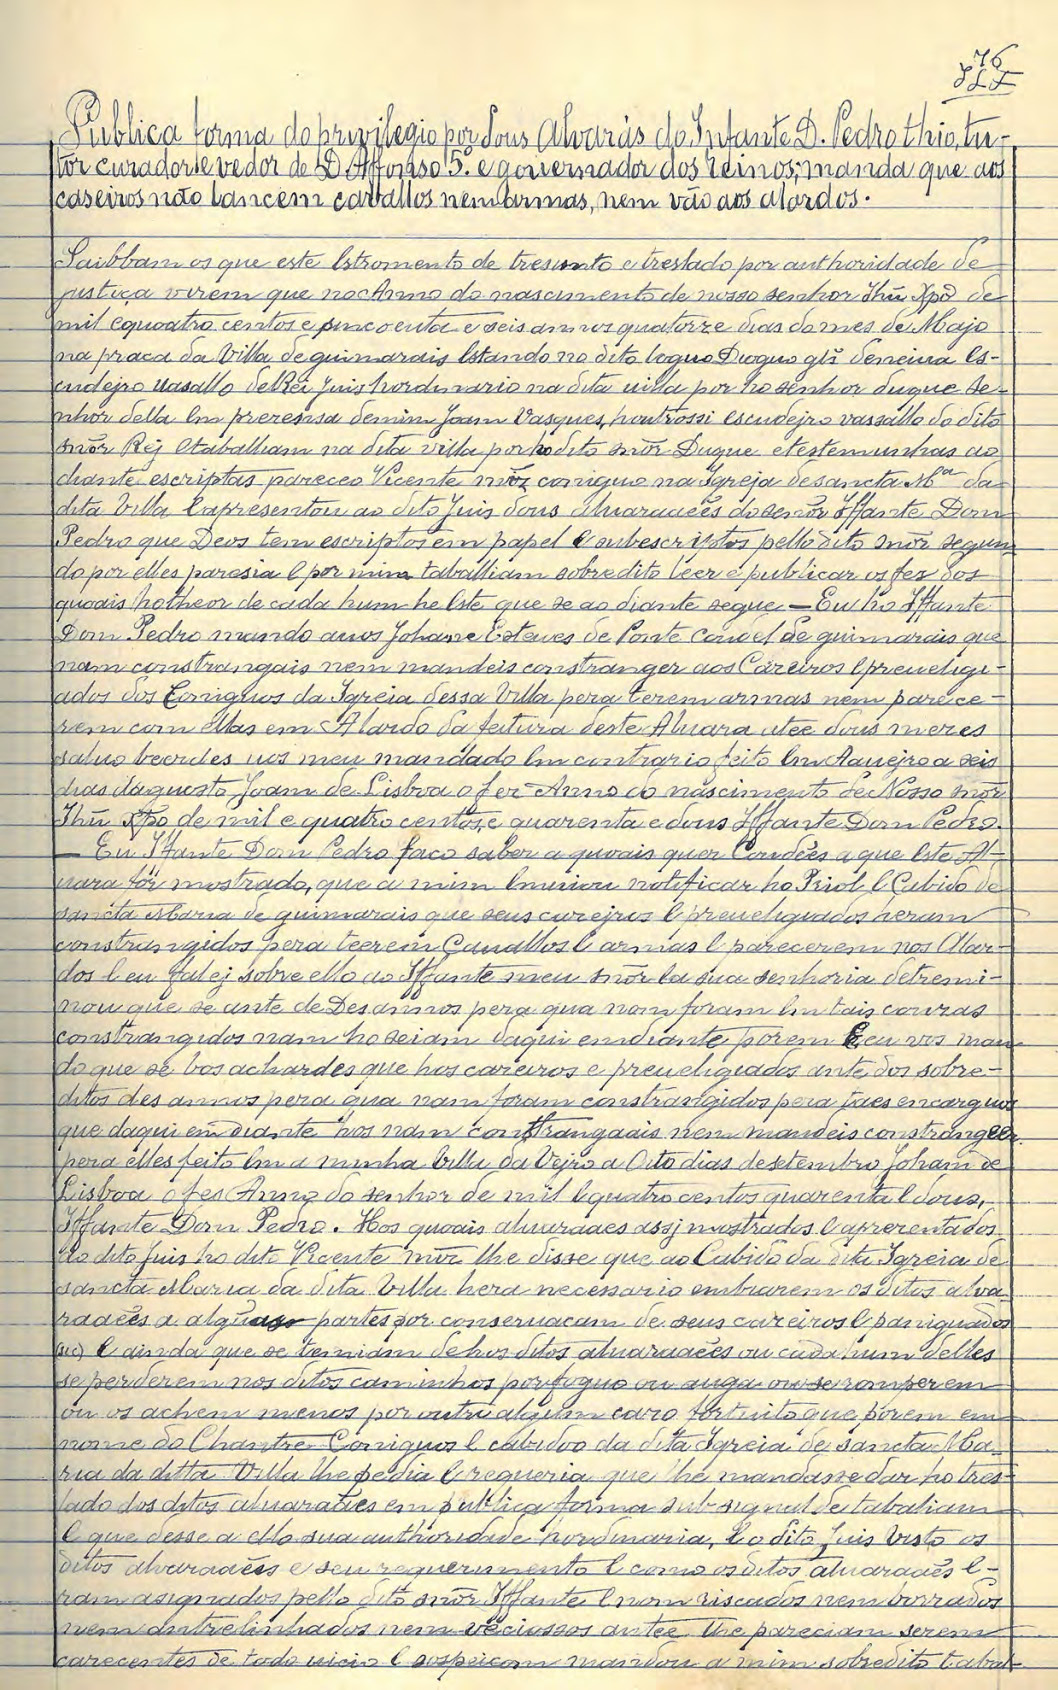 76
Publica forma do privilegio por dous Alvarás do Infante D. Pedro thio, tu-
tor curador e vedor de D. Affonso 5.º e governador dos reinos; manda que aos
caseiros não lancem cavallos nem armas, nem vão aos alardos.
Saibbam os que este Estromento de tresunto e treslado por authoridade de
justiça virem que no Anno do nascimento de nosso senhor Ihũ Xpõ de
mil e quoatro centos e sincoenta e seis annos quatorze dias do mes de Majo
na praça da Villa de guimarais Estando no dito loguo Dioguo glz̃ de neiva Es-
cudejro uasallo del Rei Juis hordinario na dita uilla por ho senhor duque se-
nhor della Em prezensa de mim Joam Vasques, houtrossi escudejro vassallo do dito
snõr Rej e tabalham na dita villa por ho dito snõr Duque e testemunhas ao
diante escriptas pareceo Vicente mĩz coniguo na Igreja de sancta Mᵃ da
dita Villa E apresentou ao dito Juis dous aluaraaẽs do senõr Iffante Dom
Pedro que Deos tem escriptos em papel e subescriptos pello dito snõr segun
do por elles paresia E por mim taballiam sobredito leer e publicar os fez dos
quoais ho theor de cada hum he Este que se ao diante segue — Eu ho Iffante
Dom Pedro mando auos Johane Esteves de Ponte Coudel de guimarais que
nam constrangais nem mandeis constranger aos Cazeiros E preueligi-
ados dos Coniguos da Igreia dessa Villa pera terem armas nem parece-
rem com ellas em Alardo da feitura deste Aluara atee dous mezes
saluo beerdes uos meu mandado Em contrario feito Em Aauejro a seis
dias daguosto Joam de Lisboa o fez Anno do nascimento de Nosso snõr
Ihũ Xpõ de mil e quatro centos, e quarenta e dous Iffante Dom Pedro.
— Eu Iffante Dom Pedro faco saber a quoais quer Coudẽes a que Este Al-
uara for mostrado, que a mim Enuiou notificar ho Priol E Cabido de
sancta Maria de guimarais que seus cazejros E preueligiados heram
constrangidos pera teerem Cauallos E armas E parecerem nos Alar-
dos E eu falej sobre ello ao Iffante meu snõr E a sua senhoria detremi-
nou que se ante de Des annos pera qua nom foram Em tais couzas
constrangidos nam ho seiam daqui em diante porem Eeu vos man
do que se bos achardes que hos cazeiros e preueligiados ante dos sobre-
ditos des annos pera qua nam foram constrangidos pera taes encarguos
que daqui em diante hos nam constrangaais nem mandeis constrangeer
pera elles feito Em a minha Villa da Vejro a Oito dias de setembro Joham de
Lisboa o fes Anno do senhor de mil E quatro centos quarenta E dous,
Iffante Dom Pedro. Hos quoais aluaraaes assj mostrados E aprezentados
ao dito Juis ho dito Vicente mĩz lhe disse que ao Cabido da dita Igreia de
sancta Maria da dita Villa hera necessario embiarem os ditos alva-
raaẽs a algũas partes por conseruacam de seus cazeiros E paniguados
(sic) E ainda que se temiam de hos ditos aluaraaẽs ou cada hum delles
se perderem nos ditos caminhos por foguo ou auga ou se romperem
ou os achem menos por outro algum cazo fortuito que porem em
nome do Chantre Coniguos E cabidoo da dita Igreia de sancta Ma-
ria da ditta Villa lhe pedia E requeria que lhe mandasse dar ho tres-
lado dos ditos aluaraães em publica forma sub signal de tabaliam
E que desse a ello sua authoridade hordinaria, E o dito Juis Visto os
ditos alvaraaẽs e seu requerimento E como os ditos aluaraaẽs E-
ram asignados pello dito snõr Iffante E nom riscados nem borrados
nem antrelinhados nem veciossos antee lhe pareciam serem
carecentes de todo uicio E sospeicom mandou a mim sobredito tabal-